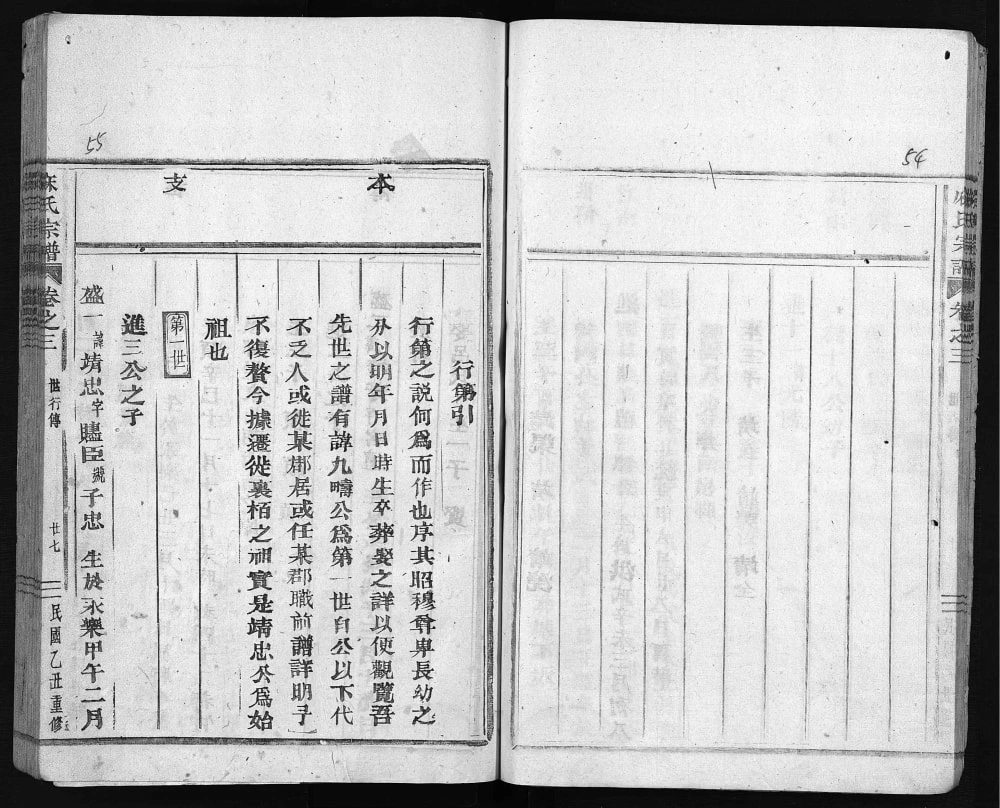 54
氏宗譜 卷之三
55
本 支
行第引
行第之說何爲而作也序其昭穆尊卑長幼之
分以明年月日時生卒葬娶之詳以便觀覽吾
先世之譜有諱九疇公爲第一世自公以下代
不乏人或徙某郡居或任某郡職前譜詳明予
不復贅今據遷徙裏栢之祖實是靖忠公爲始
祖也
第一世
進三公之子
盛一 諱靖忠字贐臣號子忠 生於永樂甲午二月
氏宗譜 卷之三 世行傳 廿七 民國乙丑重修